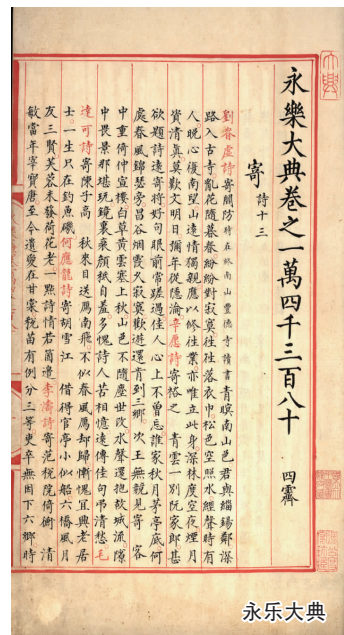 永樂大典卷之一萬四千三百八十 四霽
寄 詩十三
劉眘虛詩寄閻防時在終南山豐德寺讀書青暝南山色君與緇錫鄰深
路入古寺亂花隨暮春紛紛對寂寞往往落衣巾松色空照水經聲時有
人晚心復南望山遠情獨親應以修往業亦唯立此身深林度空夜煙月
資清真莫歎文明日彌年從隱淪辛愿詩寄裕之 青雲一別阮家郎甚
欲題詩遠寄將好句眼前常蹉過佳人心上不曾忘誰家秋月茅亭底何
處春風錦瑟旁昌谷烟霞久寂寞歡遊還肯到三鄉 次王無競見寄 客
中重倚仲宣樓白草黄雲塞上秋山色不隨塵世改水聲還抱故城流隙
中畏景那堪玩鏡裏衰顏秪自羞多愧詩人苦相憶遠傳佳句弔清愁毛
達可詩寄陳子高 秋來日送鴈南飛不似春風鴈却歸慚愧宜興老居
士一生只在釣魚磯何應龍詩寄胡雪江 借得官亭小似船六橋風月
友三賢芙蓉未發荷花老一點詩情若箇邊李濤詩寄范稅院倚衡 清
敏當年宰寶唐至今遺愛在甘棠稅苗有例分三等吏卒無因下六鄉時
永乐大典